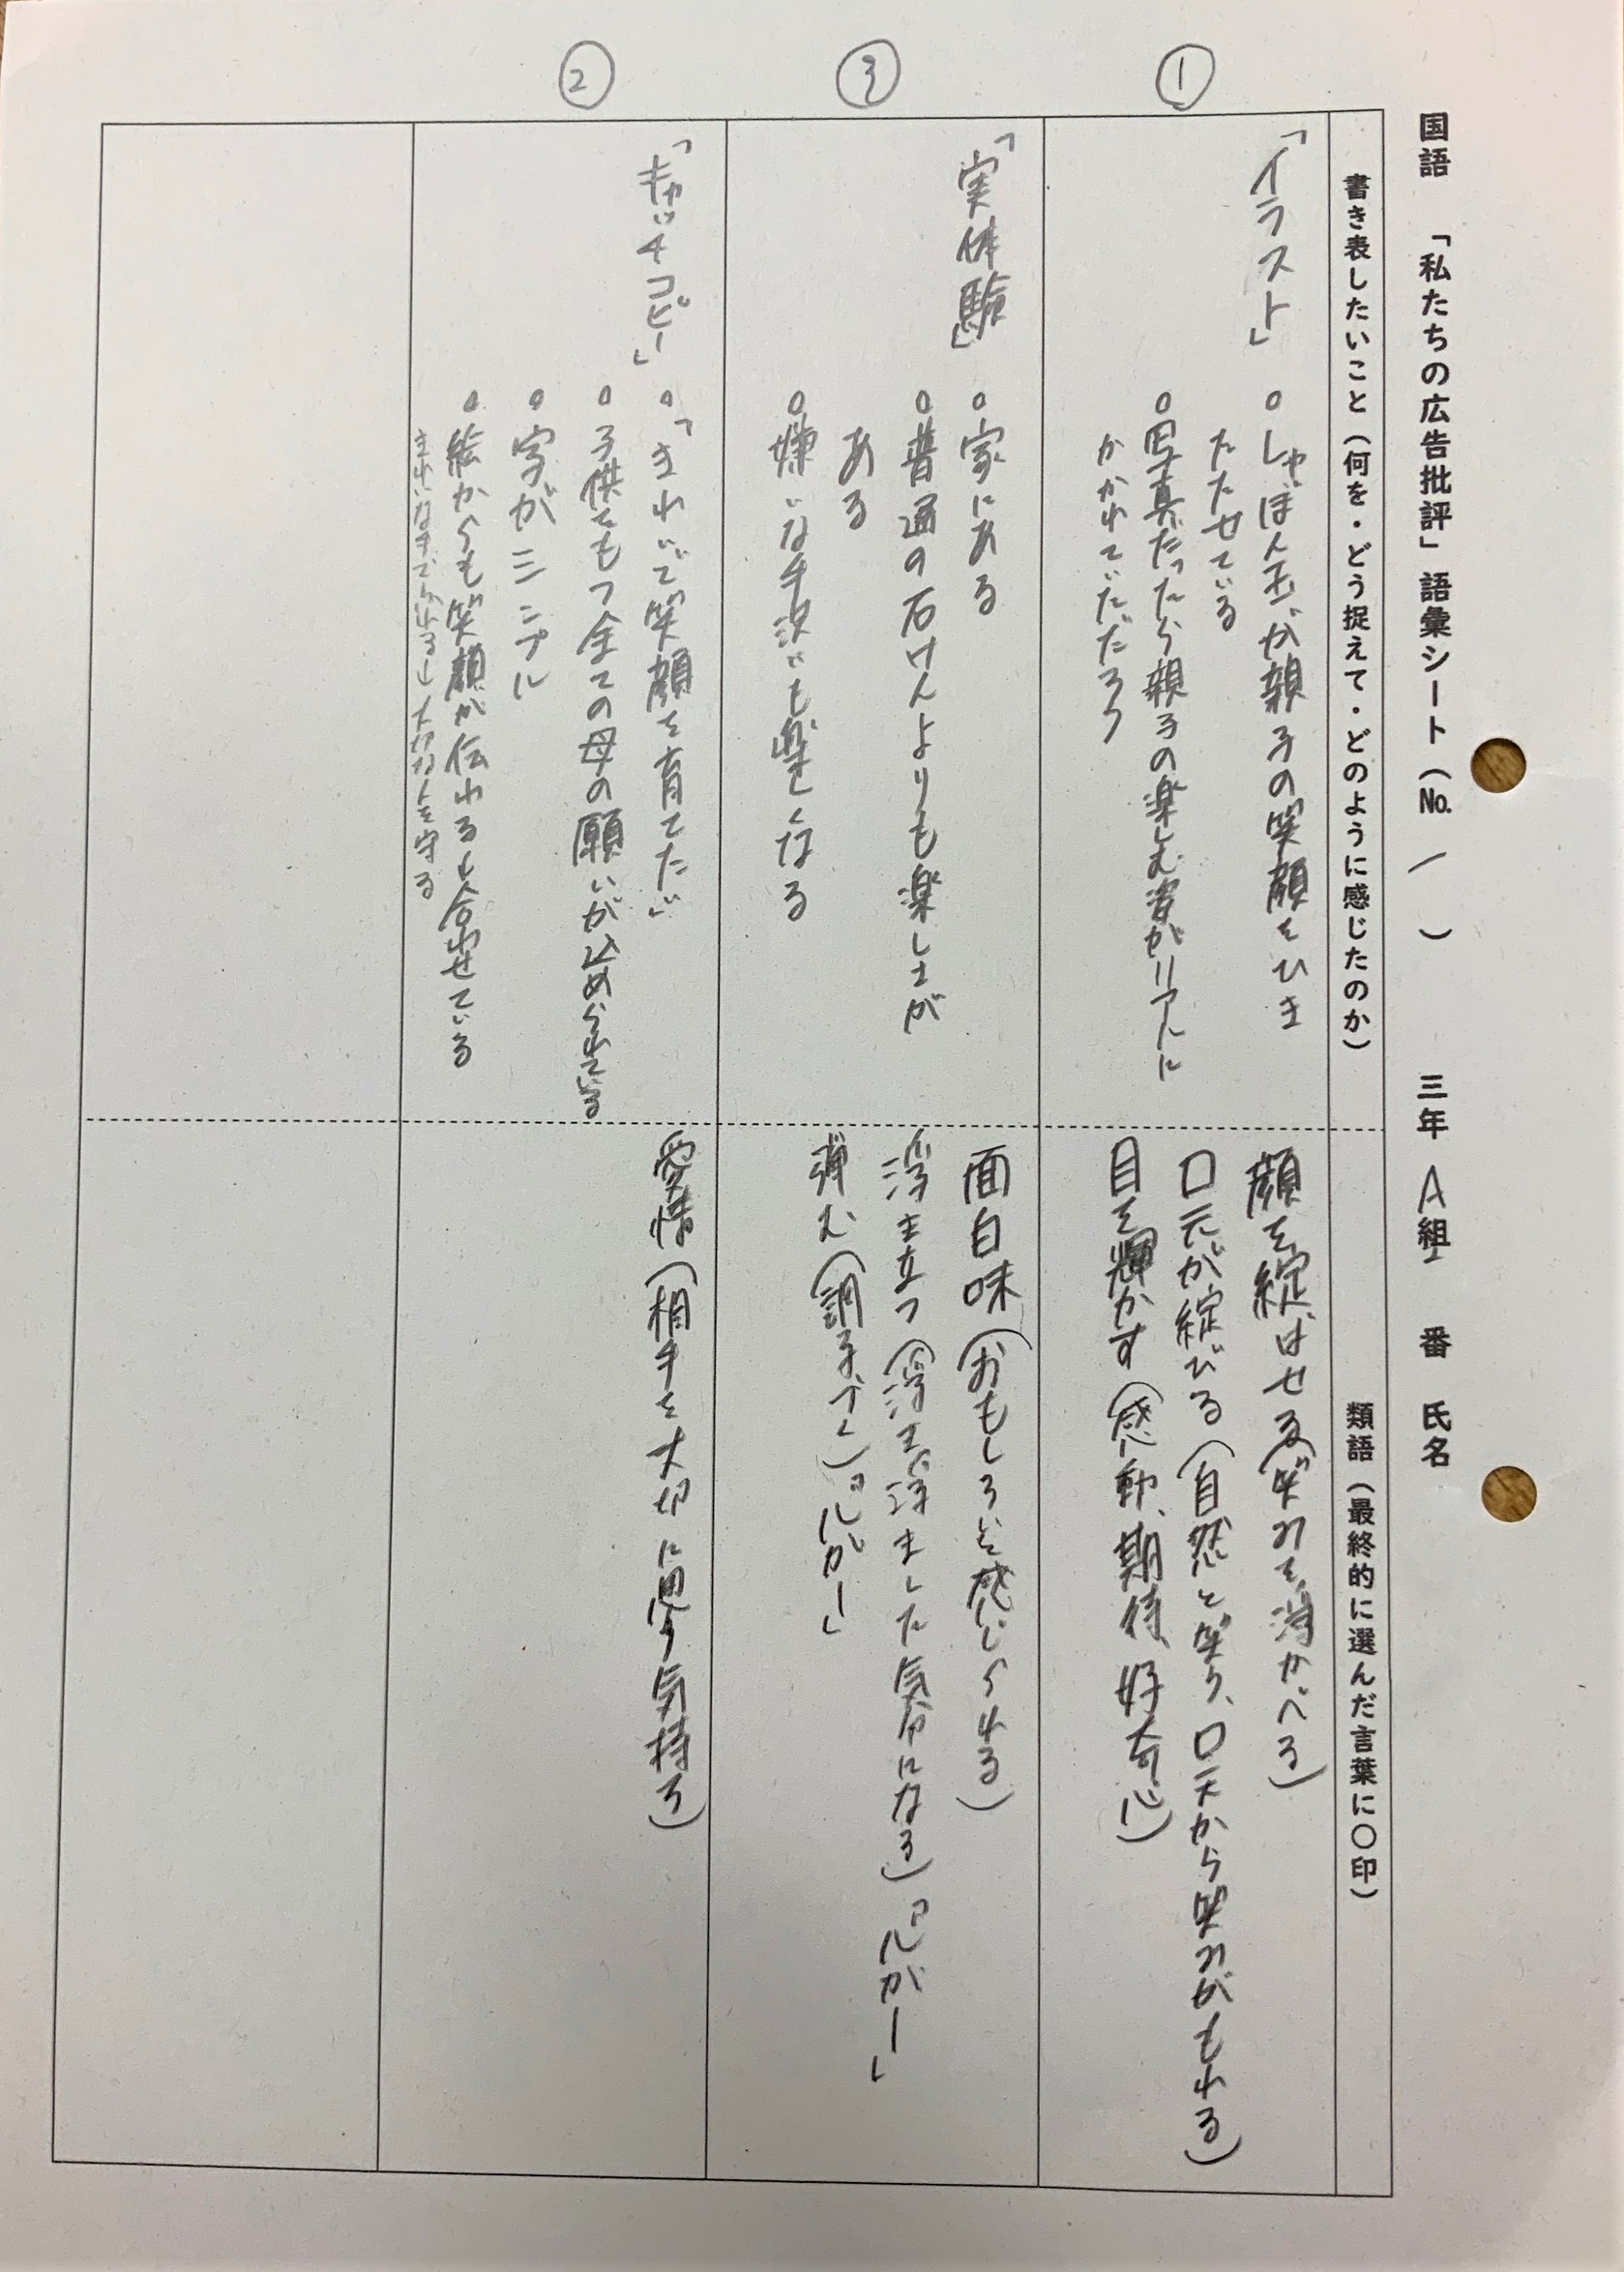 国語 「私たちの広告批評」語彙シート（No. 1 ） 三年 A組 番 氏名
書き表したいこと（何を・どう捉えて・どのように感じたのか）
類語（最終的に選んだ言葉に〇印）
①
「イラスト」
○しゃぼん玉が親子の笑顔をひき
たたせている
○写真だったら親子の楽しむ姿がリアルに
かかれていただろう
顔を綻ばせる(笑みを浮かべる)
口元が綻びる(自然と笑う、口元から笑みがもれる)
目を輝かす(感動、期待、好奇心)
③
「実体験」
○家にある
○普通の石けんよりも楽しさが
ある
○嫌いな手洗いも楽しくなる
面白味(おもしろいと感じられる)
浮き立つ(浮き浮きした気分になる)「心が―」
弾む(調子づく)「心が―」
②
「キャッチコピー」
○「きれいで笑顔を育てたい」
○子供をもつ全ての母の願いが込められている
○字がシンプル
○絵からも笑顔が伝わるし合わせている
きれいな手で 大切な人を守る
愛情(相手を大切に思う気持ち)